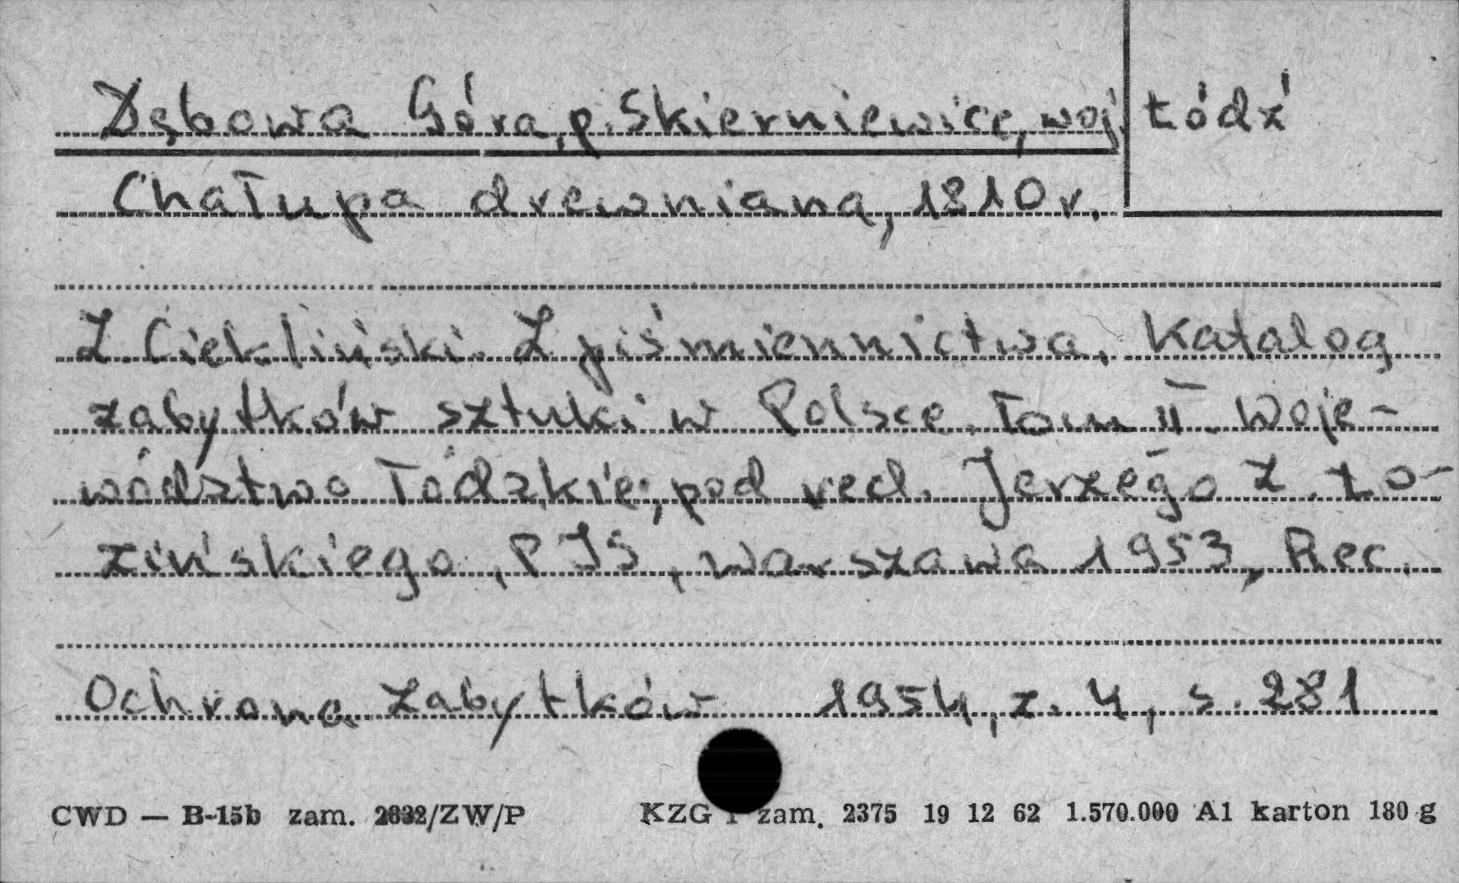 Dębowa Góra, p. Skierniewice, woj. Łódź
Chałupa drewniana, 1810 r.
Z. Ciekliński. Z piśmiennictwa. Katalog
zabytków sztuki w Polsce. Tom II. Woje-
wództwo łódzkie, pod red. Jerzego Z. Ło-
zińskiego, PIS, Warszawa 1953, Rec.
Ochrona Zabytków 1954, z. 4, s. 281
CWD — B-15b zam. 2632/ZW/P KZG zam. 2375 19 12 62 1.570.000 A1 karton 180 g